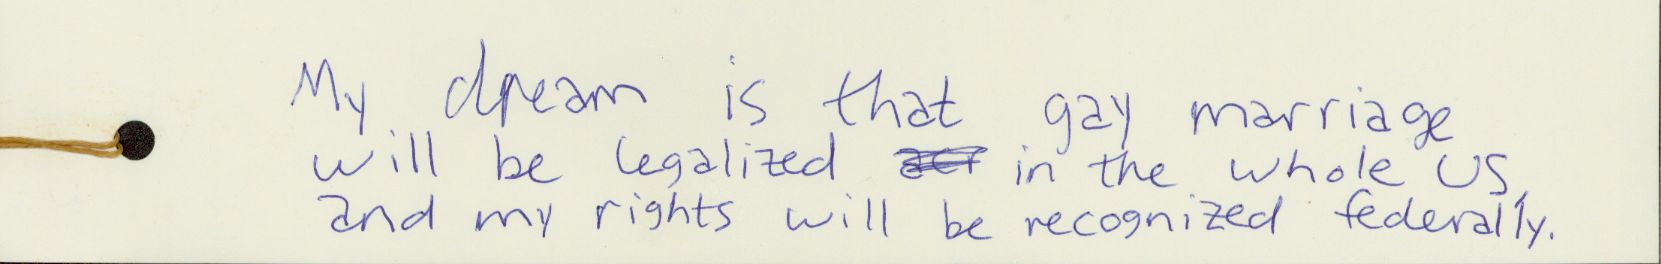 My dream is that gay marriage
will be legalized in the whole US,
and my rights will be recognized federally.